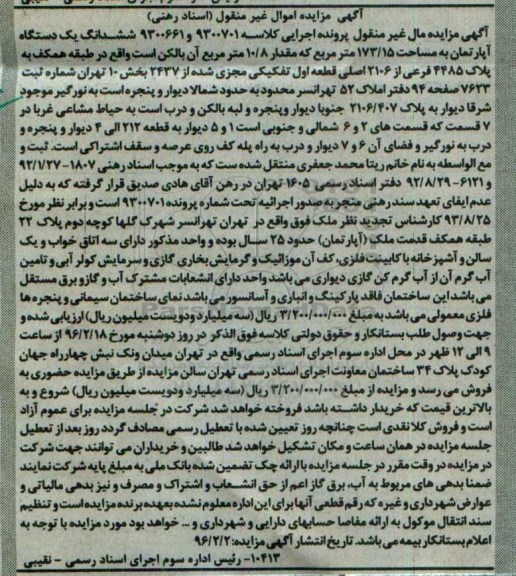 آگهی مزایده اموال غیر منقول (اسناد رهنی)
آگهی مزایده مال غیر منقول پرونده اجرایی کلاسه ۹۳۰۰۷۰۱ و ۹۳۰۰۶۶۱ ششدانگ یک دستگاه
آپارتمان به مساحت ۱۷۳/۱۵ متر مربع که مقدار ۱۰/۸ متر مربع آن بالکن است واقع در طبقه همکف به
پلاک ۴۴۸۵ فرعی از ۲۱۰۶ اصلی قطعه اول تفکیکی مجزی شده از ۲۴۳۷ بخش ۱۰ تهران شماره ثبت
۷۶۲۳ صفحه ۹۴ دفتر املاک ۵۲ تهرانسر محدود به حدود شمالا دیوار و پنجره است به نورگیر موجود
شرقا دیوار به پلاک ۲۱۰۶/۴۰۷ جنوبا دیوار وپنجره و لبه بالکن و درب است به حیاط مشاعی غربا در
۷ قسمت که قسمت های ۲ و ۶ شمالی و جنوبی است ۱ و ۵ دیوار به قطعه ۲۱۲ الی ۴ دیوار و پنجره و
درب به نورگیر و فضای آن ۶ و ۷ دیوار و درب به راه پله کف روی عرصه و سقف اشتراکی است. ثبت و
مع الواسطه به نام خانم ریتا محمد جعفری منتقل شده ست که به موجب اسناد رهنی ۱۸۰۷-۹۲/۷/۲۷
و ۶۱۲۱-۹۲/۸/۲۹ دفتر اسناد رسمی ۱۶۰۵ تهران در رهن آقای هادی صدیق قرار گرفته که به دلیل
عدم ایفای تعهد سند رهنی منجر به صدور اجرائیه تحت شماره پرونده ۹۳۰۰۷۰۱ است و برابر نظر مورخ
۹۳/۸/۲۵ کارشناس تجدید نظر ملک فوق واقع در تهران تهرانسر شهرک گلها کوچه دوم پلاک ۲۲
طبقه همکف قدمت ملک (آپارتمان) حدود ۲۵ سال بوده و واحد مذکور دارای سه اتاق خواب و یک
سالن و آشپزخانه با کابینت فلزی، کف آن موزائیک و گرمایش بخاری گازی و سرمایش کولر آبی و تامین
آب گرم آن از آب گرم کن گازی دیواری می باشد واحد دارای انشعابات مشترک آب و گاز و برق مستقل
می باشد این ساختمان فاقد پارکینگ و انباری و آسانسور می باشد نمای ساختمان سیمانی و پنجره ها
فلزی معمولی می باشد به مبلغ ۳/۲۰۰/۰۰۰/۰۰۰ ریال (سه میلیارد و دویست میلیون ریال) ارزیابی شده و
جهت وصول طلب بستانکار و حقوق دولتی کلاسه فوق الذکر در روز دوشنبه مورخ ۹۶/۲/۱۸ از ساعت
۹ الی ۱۲ ظهر در محل اداره سوم اجرای اسناد رسمی واقع در تهران میدان ونک نبش چهارراه جهان
کودک پلاک ۳۴ ساختمان معاونت اجرای اسناد رسمی تهران سالن مزایده از طریق مزایده حضوری به
فروش می رسد و مزایده از مبلغ ۳/۲۰۰/۰۰۰/۰۰۰ ریال (سه میلیارد ودویست میلیون ریال) شروع و به
بالاترین قیمت که خریدار داشته باشد فروخته خواهد شد شرکت در جلسه مزایده برای عموم آزاد
است و فروش کلا نقدی است چنانچه روز تعیین شده با تعطیل رسمی مصادف گردد روز بعد از تعطیل
جلسه مزایده در همان ساعت و مکان تشکیل خواهد شد طالبین و خریداران می توانند جهت شرکت
در مزایده در وقت مقرر در جلسه مزایده با ارائه چک تضمین شده بانک ملی به مبلغ پایه شرکت نمایند
ضمنا بدهی های مربوط به آب، برق گاز اعم از حق انشعاب و اشتراک و مصرف و نیز بدهی مالیاتی و
عوارض شهرداری و غیره که رقم قطعی آنها برای این اداره معلوم نشده بعهده برنده مزایده است و تنظیم
سند انتقال موکول به ارائه مفاصا حسابهای دارایی و شهرداری و ... خواهد بود مورد مزایده با توجه به
اعلام بستانکار بیمه می باشد. تاریخ انتشار آگهی مزایده: ۹۶/۲/۲
۱۰۴۱۳- رئیس اداره سوم اجرای اسناد رسمی - نقیبی